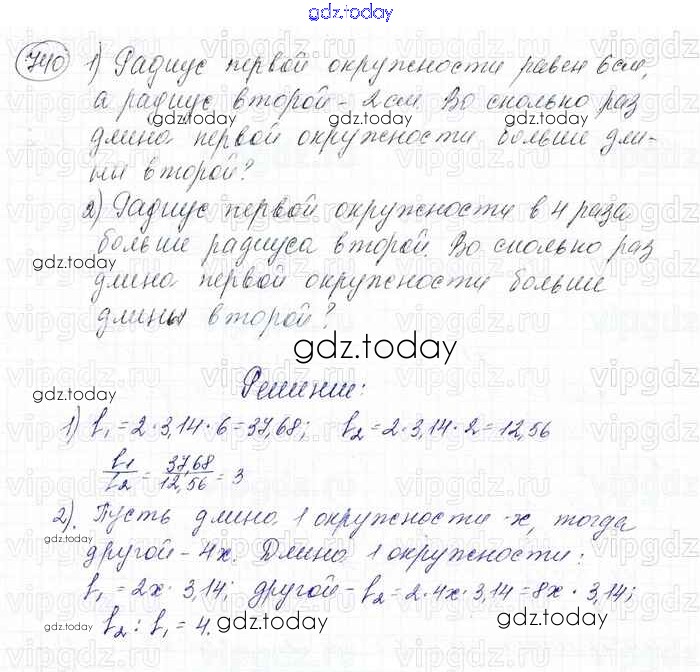 gdz.today
740 1) Радиус первой окружности равен 6см,
а радиус второй - 2см. Во сколько раз
gdz.today gdz.today gdz.today
длина первой окружности больше дли-
ны второй?
2) Радиус первой окружности в 4 раза
больше радиуса второй. Во сколько раз
gdz.today gdz.today gdz.today
длина первой окружности больше
длины второй?
gdz.today
Решение:
gdz.today gdz.today
1) l₁ = 2·3,14·6 = 37,68; l₂ = 2·3,14·2 = 12,56
l₁/l₂ = 37,68/12,56 = 3
2). Пусть длина 1 окружности - x, тогда
gdz.today gdz.today gdz.today
другой - 4x. Длина 1 окружности:
l₁ = 2x·3,14; другой - l₂ = 2·4x·3,14 = 8x·3,14;
l₂ : l₁ = 4.
gdz.today gdz.today gdz.today
vipgdz.ru